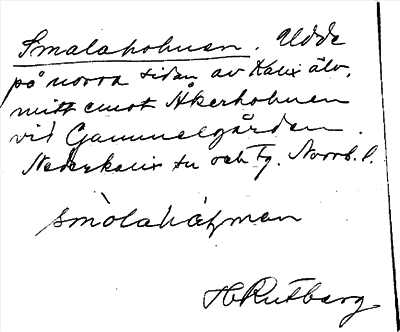 Smalaholmen. Udde
på norra sidan av Kalix älv,
mitt emot Åkerholmen
vid Gammelgården.
Nederkalix sn och Tg. Norrb. l.
smòlahòƚmen
H Rutberg